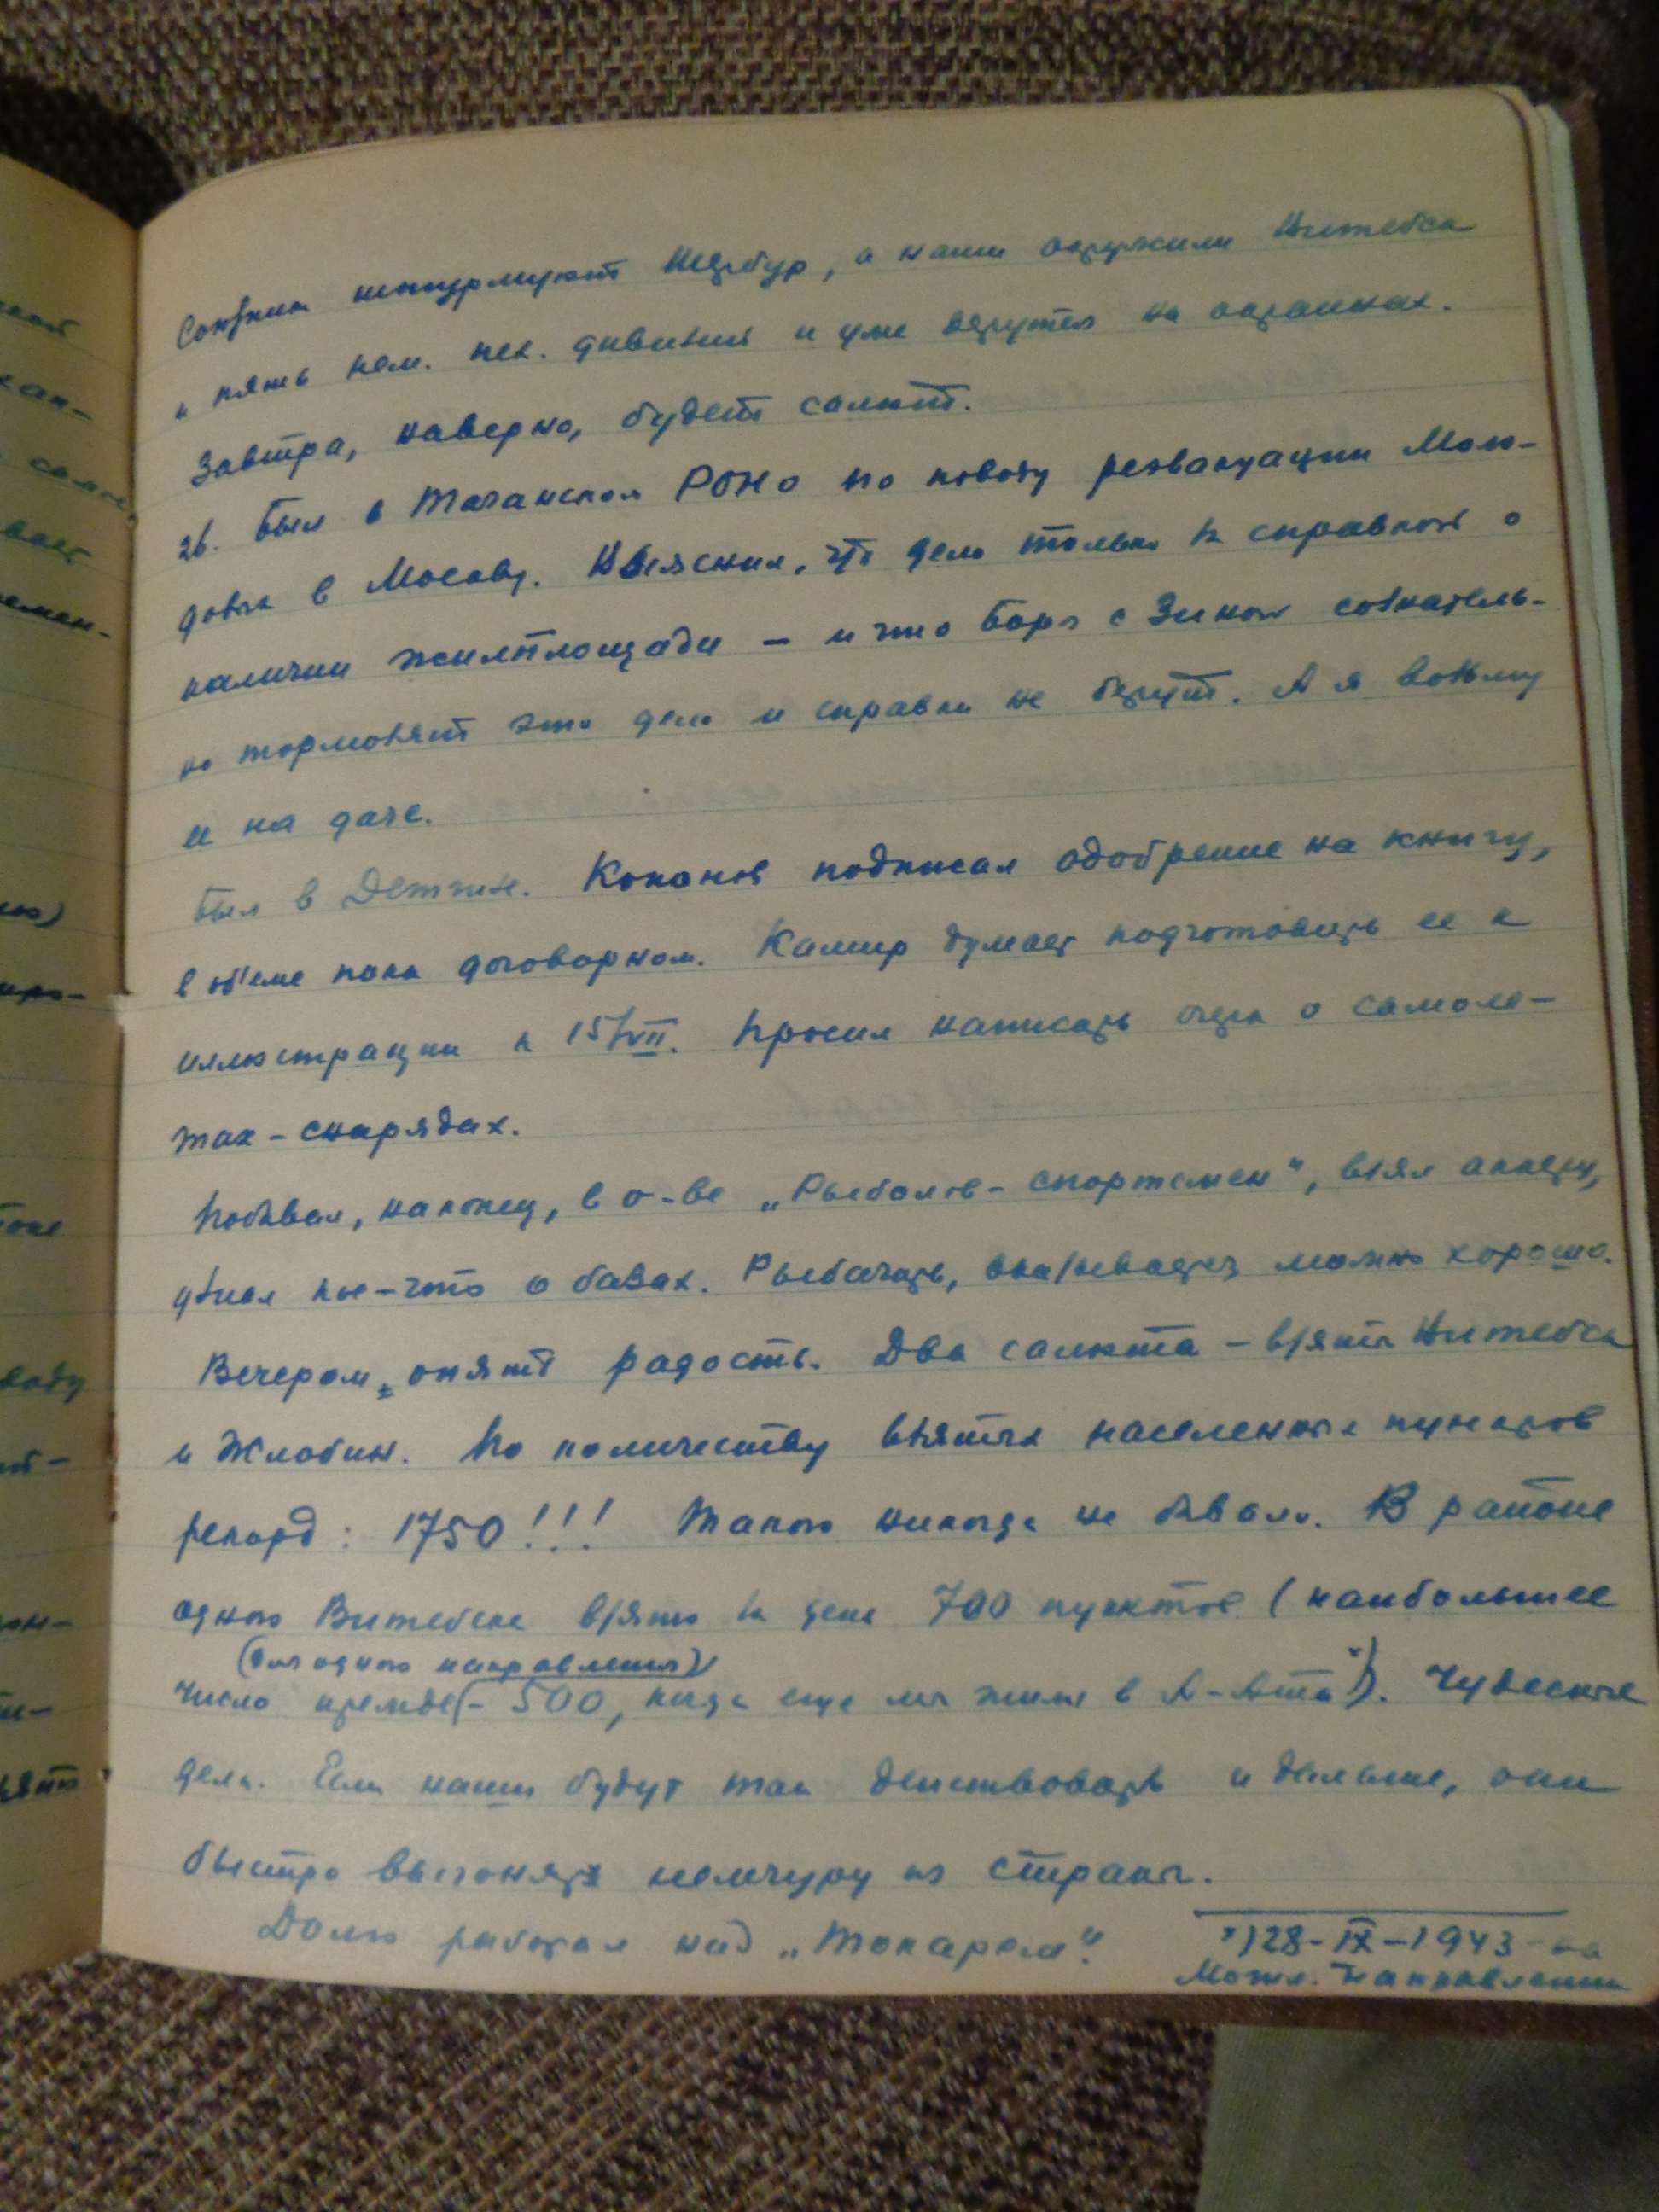 Союзники штурмуют Шербур, а наши окружили Витебск
и пять нем. пех. дивизий и уже дерутся на окраинах.
Завтра, наверно, будет салют.
26. Был в Таганском РОНО по поводу реэвакуации Моло-
довых в Москву. Выяснил, что дело только за справкой о
наличии жилплощади – и что Боря с Зиной сознатель-
но тормозят это дело и справки не берут. А я возьму
и на даче.
Был в Детгизе. Кононов подписал одобрение на книгу,
в об'еме пока договорном. Камир думает подготовить ее к
иллюстрации к 15/VII. Просил написать очерк о самоле-
тах-снарядах.
Побывал, наконец, в о-ве „Рыболов-спортсмен", взял анкету,
узнал кое-что о базах. Рыбачить, оказывается, можно хорошо.
Вечером, опять радость. Два салюта – взяты Витебск
и Жлобин. По количеству взятых населенных пунктов
рекорд: 1750!!! Такого никогда не бывало. В районе
одного Витебска взято за день 700 пунктов (наибольшее
(для одного направления)
число прежде – 500, когда еще мы жили в А-Ата*)). Чудесные
дела. Если наши будут так действовать и дальше, они
быстро выгонят немчуру из страны.
Долго работал над „Токарем".
*) 28-IX-1943 – на
Могил. направлении
ской
ман-
емен-
кро-
тоне
воду
рон-